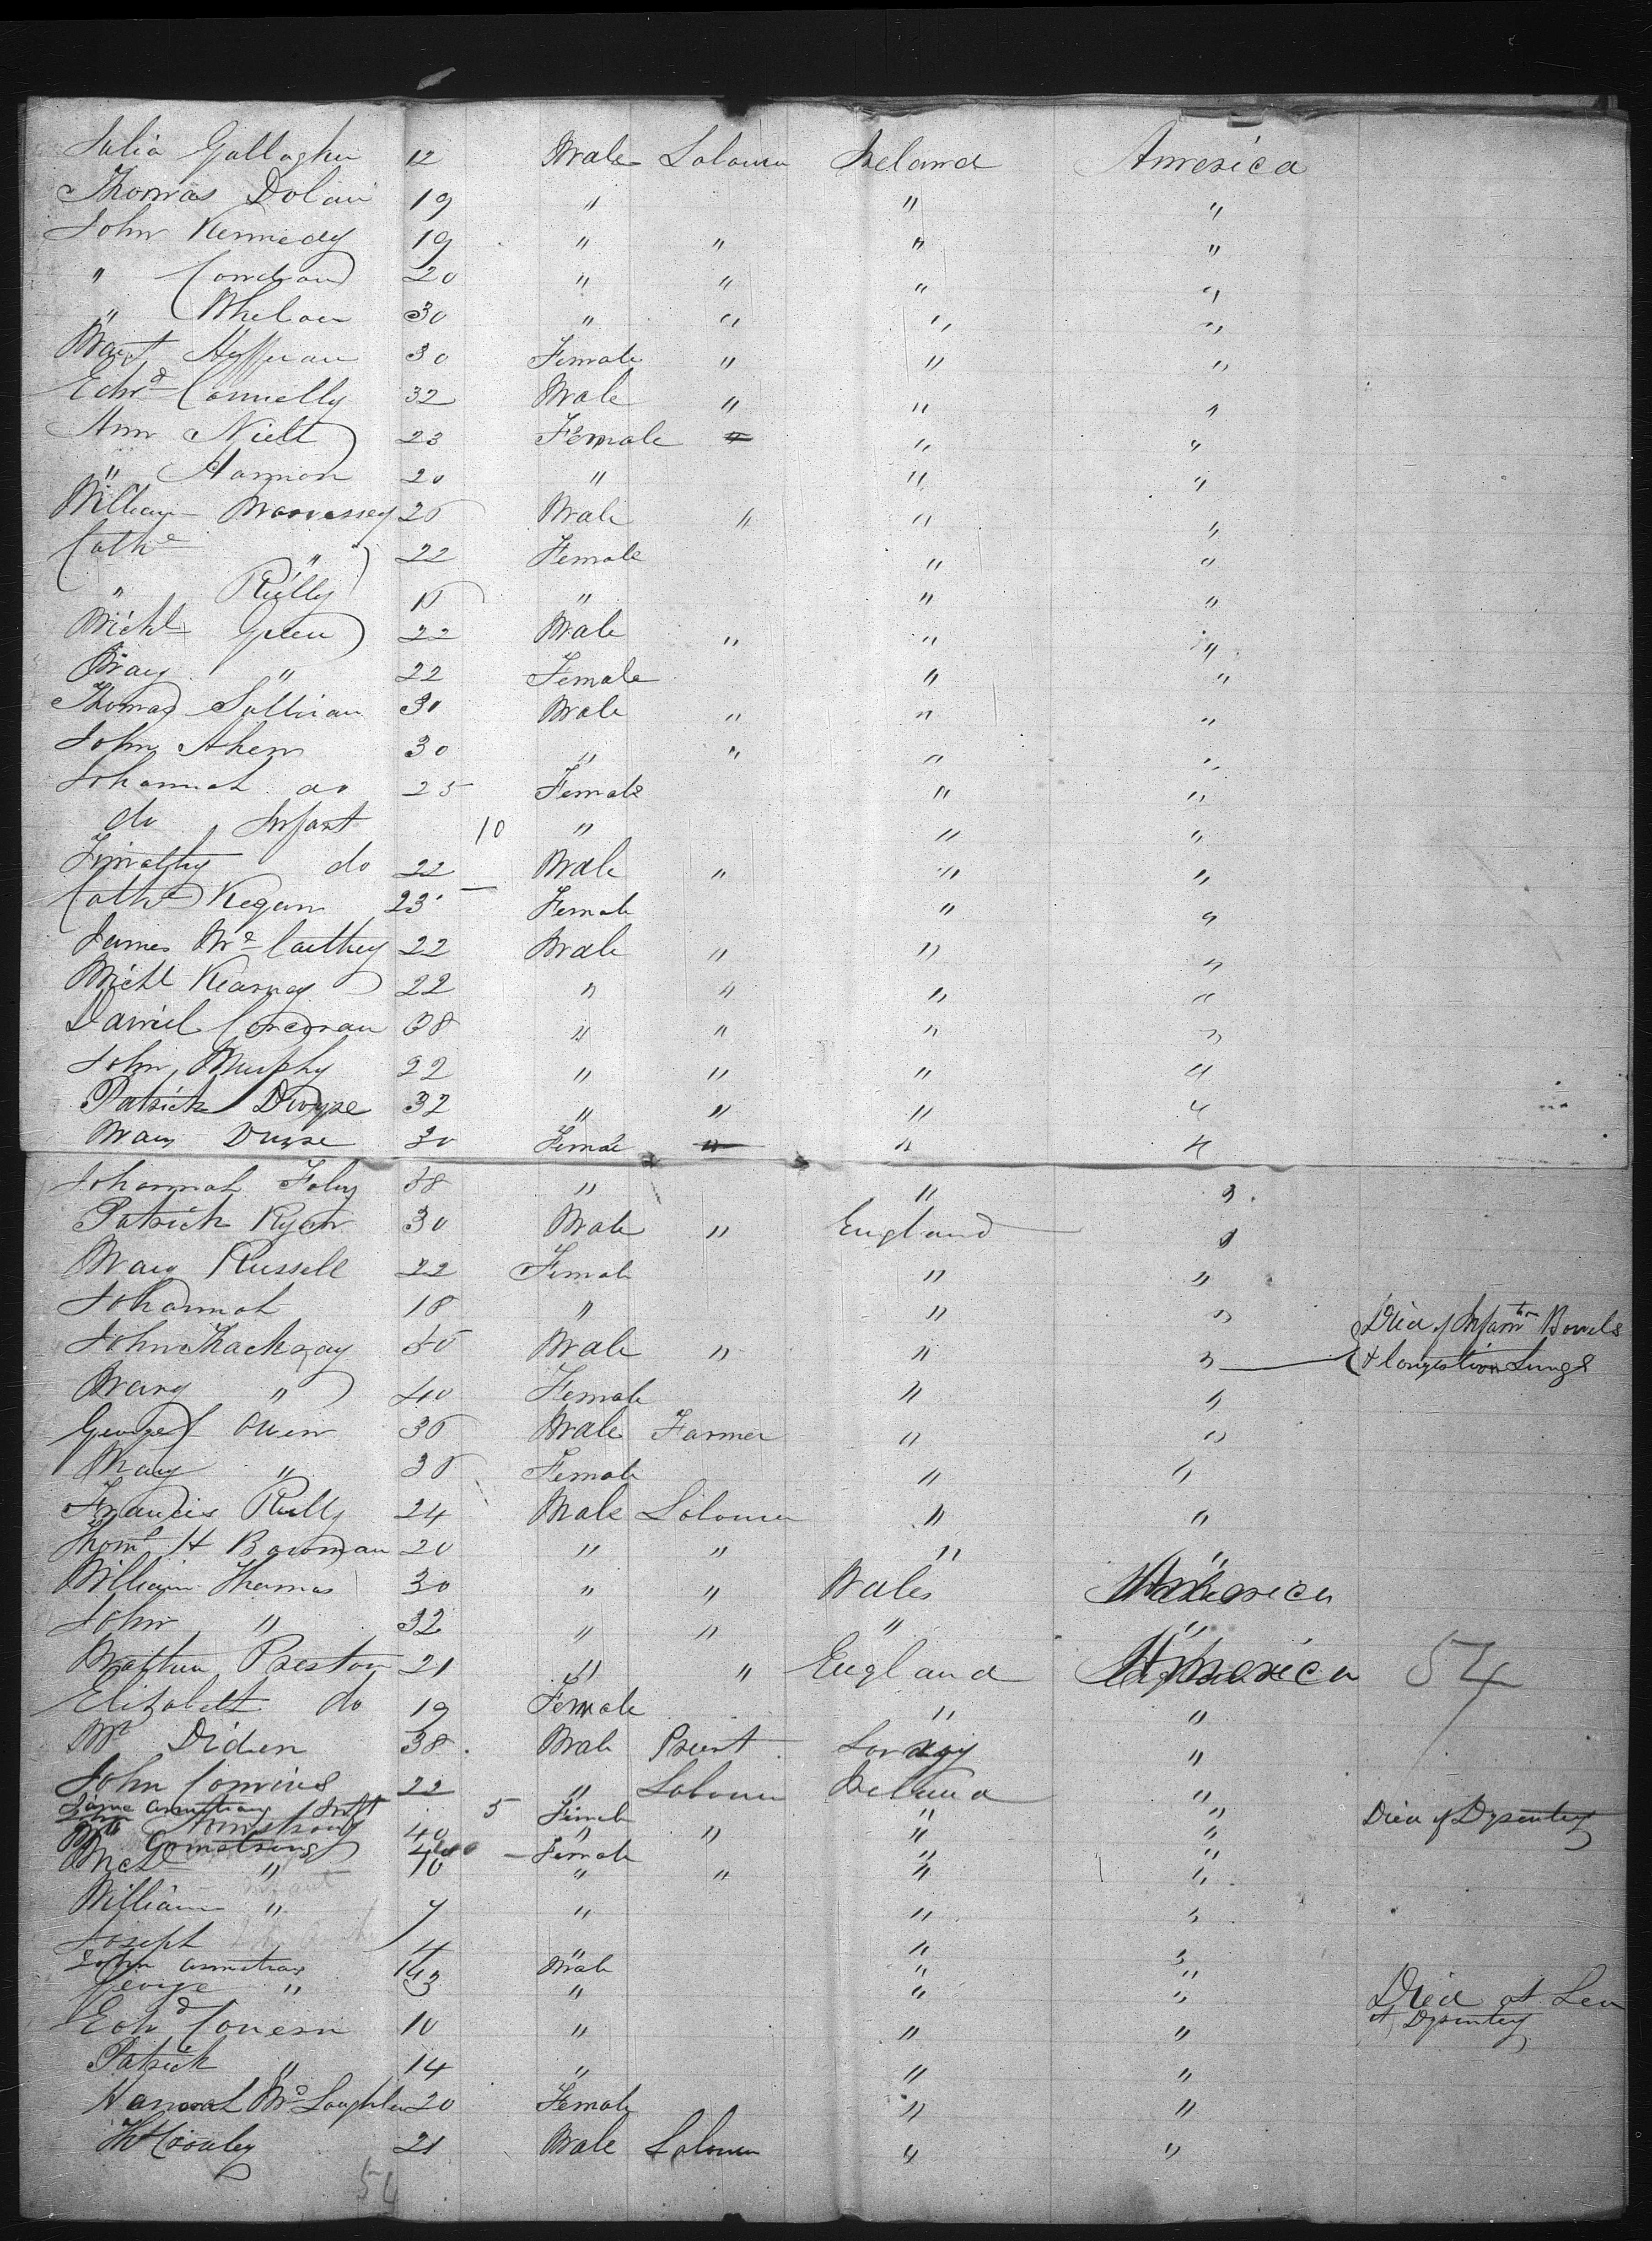 Julia Gallagher 12 Male Labourer Ireland America
Thomas Dolan 19 " " "
John Kennedy 19 " " " "
" 20 " " " "
" Whelan 30 " " " "
Margt Heffernan 30 Female " " "
Edwd Connelly 32 Male " " "
Ann 23 Female " "
" Hannon 20 " " "
William 26 Male " " "
Cathe " 22 Female " "
" Rielly " " "
Michl Green 22 Male " " "
Mary " 22 Female " "
Thomas Sullivan 30 Male " " "
John Ahern 30 " " " "
Johannah do 25 Female " "
do Infant 10 " " "
Timothy do 22 Male " " "
Cathe Kegan 23 Female " "
James Mc Carthey 22 Male " " "
Michl Kearney 22 " " " "
Daniel Corcoran 38 " " " "
John Murphy 22 " " " "
Patrick Dwyre 32 " " " "
Mary Dwyre 30 Female " "
Johannah Foley 38 " " "
Patrick Ryan 30 Male " England "
Mary Russell 22 Female " "
Johannah 18 " " "
Died of Infamtn Bowels
John Thackray 40 Male " " "
& Congestion Lungs
Mary " 40 Female " "
George Owen 36 Male Farmer " "
Mary " 36 Female " "
Francis Rielly 24 Male Labourer " "
Thoms H Bowman 20 " " " "
William Thomas 30 " " Wales America
John " 32 " " " "
Matthew Preston 21 " " England America 54
Elizabeth do 19 Female " "
Mr 38 Male Priest "
John 22 " Labourer Ireland "
Jane Armstrong Inft 5 Female " " Died of Dysentery
Armstrong 40 " " " "
Armstrong 40 Female " "
" 10 " " " "
William " 7 " " "
Joseph 4 " " "
John Armstrong 14 Male " "
George " 3 " " "
Died at Sea
Edwd 10 " " "
of Dysentery
Patrick " 14 " " "
Hannah McLaughlen 20 Female " "
Crowley 21 Male Labourer " "
54